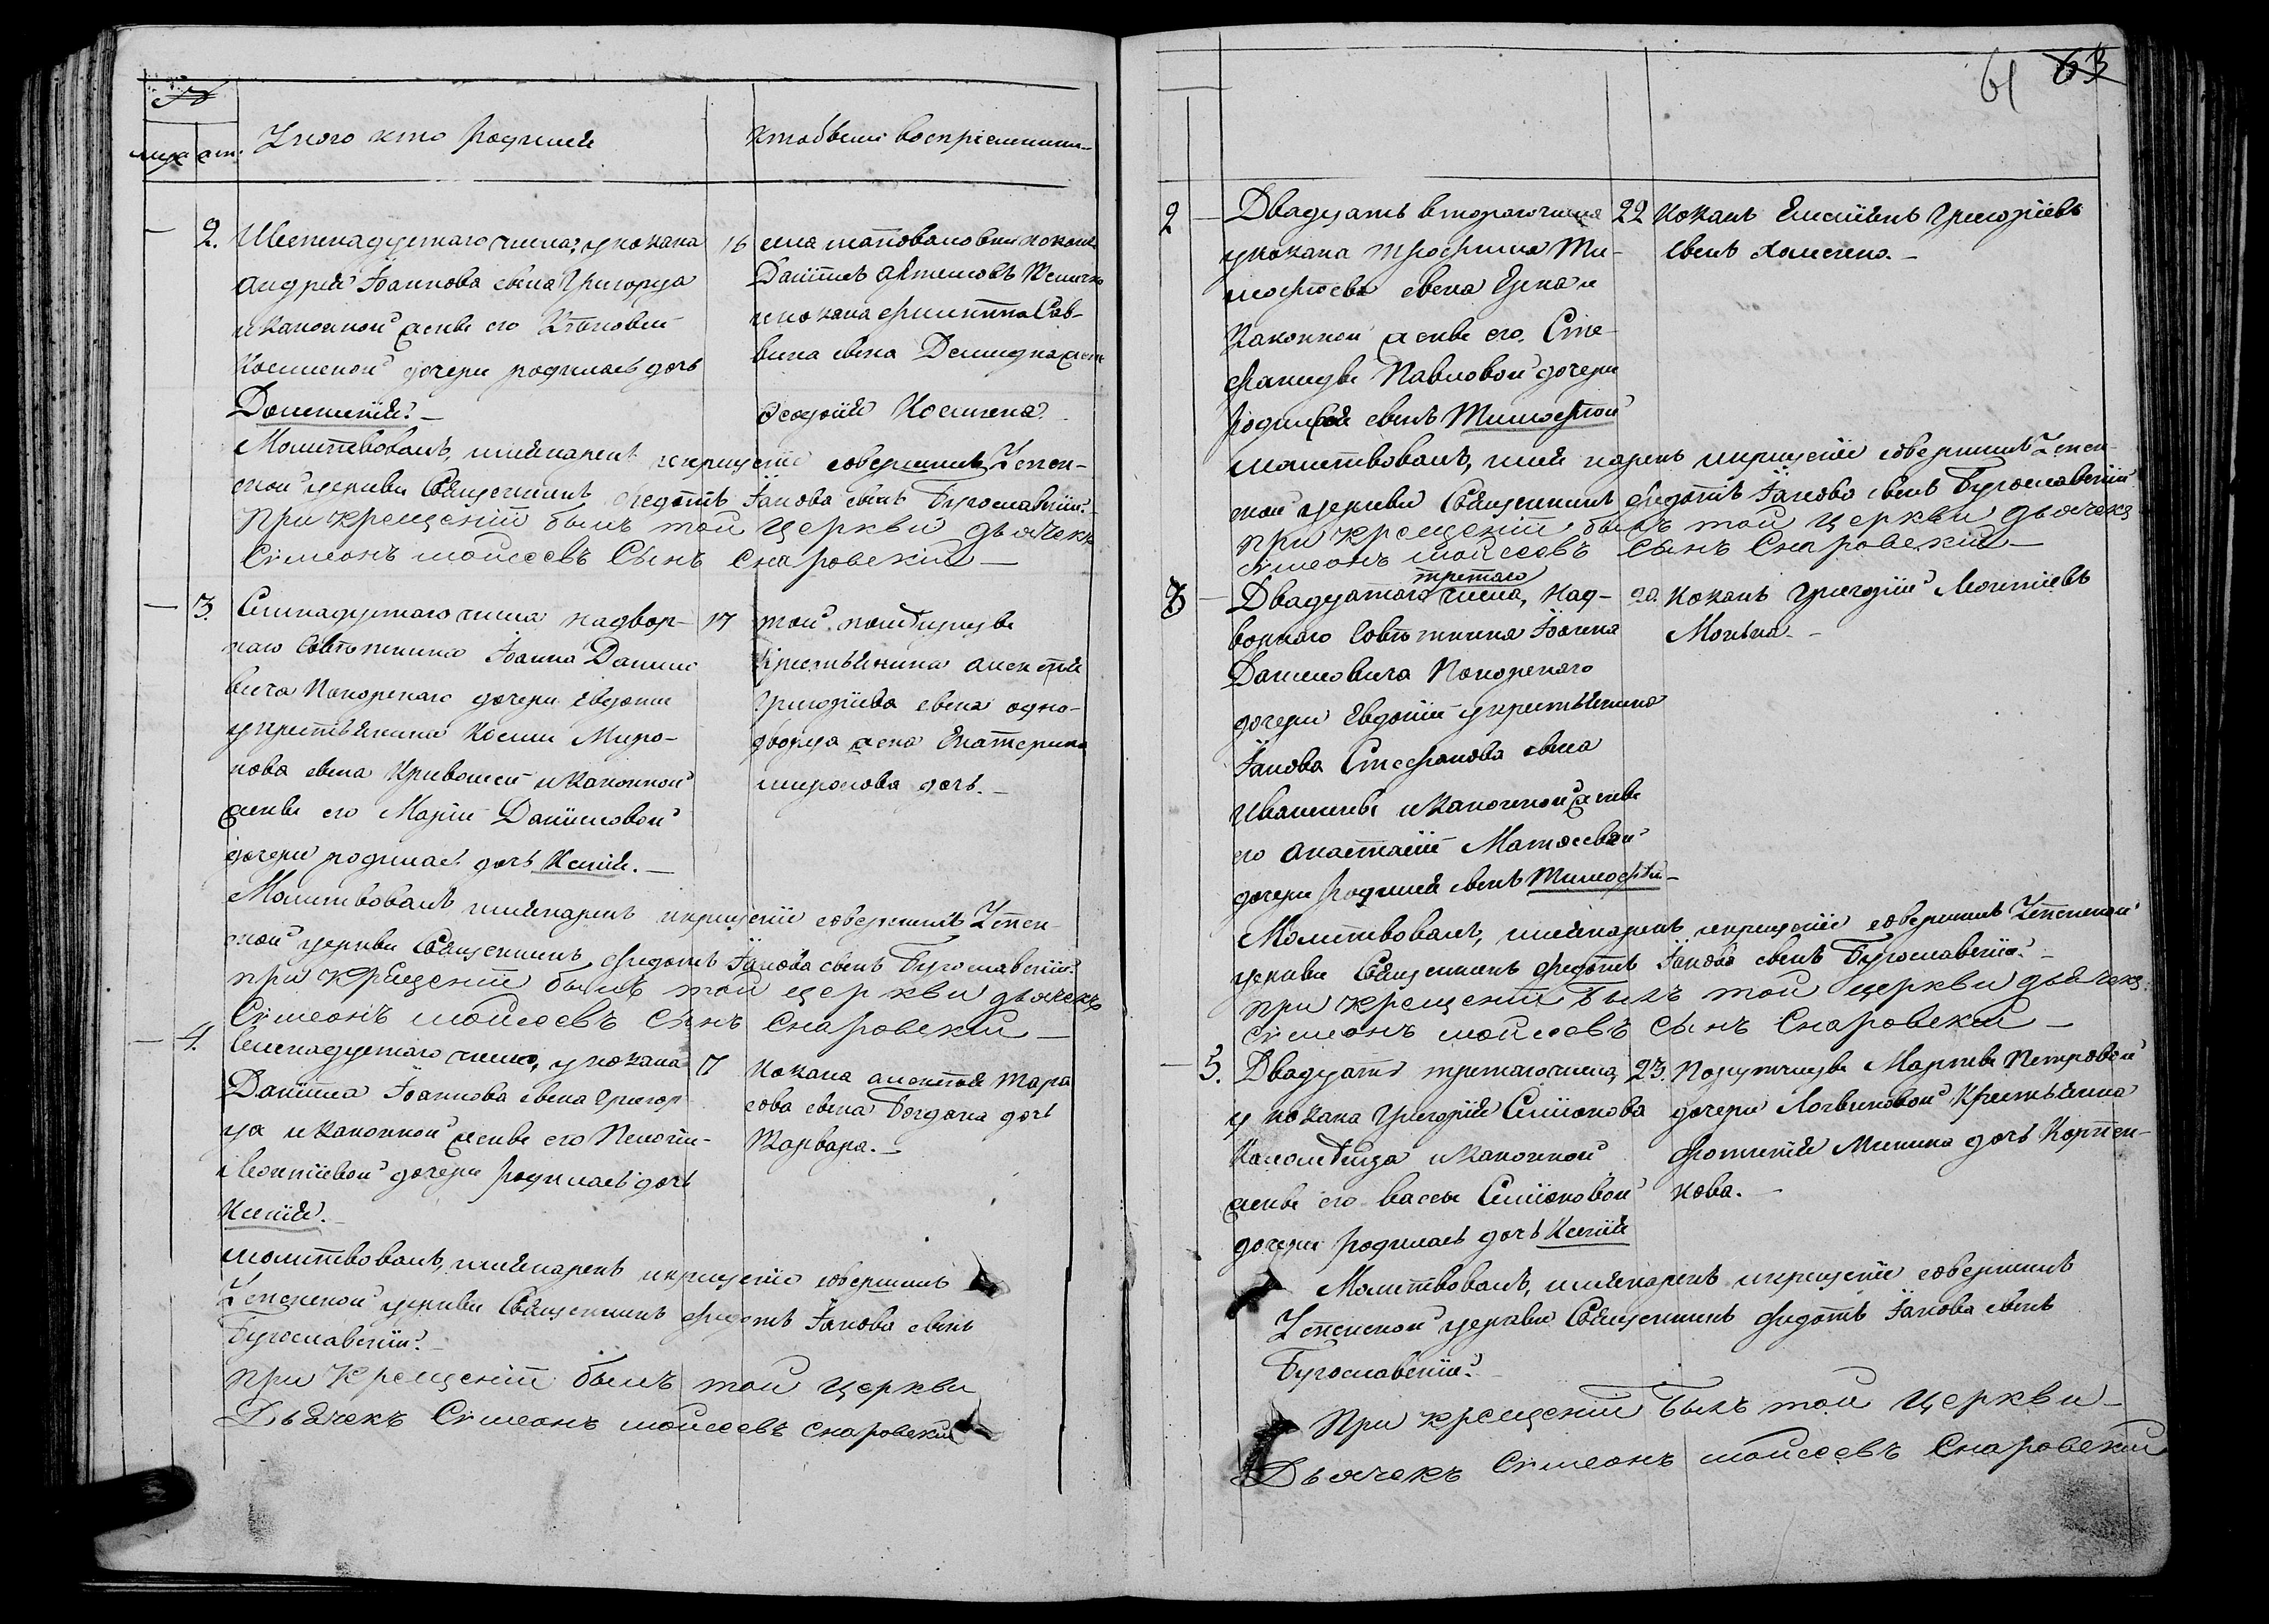 №
муж. жен.
У кого кто родился
кто были воспріемники
2.
Шестнадцетаго числа, у козака
Андрея Іоаннова сына Григорца
и законной женѣ его
Косминой дочери родилась дочь
Домникія.
16
села козакъ
Даніилъ
и козака Филиппа Сав-
вина сына Демидка жена
Ѳеодосія Космина.
Молитвовалъ, имя нарекъ и крещеніе совершилъ Успен-
ской церкви Священникъ Федотъ Іакова сынъ Бугославскій.
При крещеніи былъ той церкви дьячекъ
Сімеонъ Моисеевъ Сынъ Снаровскій
3.
Семнадцетаго числа надвор-
наго Совѣтника Іоанна Данило
вича Покорскаго дочери Евдокіи
у крестьянина Косми Миро-
нова сына Кривошеи и законной
женѣ его Маріи Даниловой
дочери родилась дочь Ксенія.
17
той помѣщицѣ
Крестьянина Алексѣя
Григоріева сына одно-
дворца жена Екатерина
Миронова дочь.
Молитвовалъ имя нарекъ и крещеніе совершилъ Успен-
ской церкви Священникъ Федотъ Іакова сынъ Бугославскій.
при крещеніи былъ той церкви дьячекъ
Сімеонъ Моисеевъ Сынъ Снаровскій
4.
Семнадцетаго числа, у козака
Даніила Іоаннова сына Григор
ца и законной женѣ его Пелагіи
Леонтіевой дочери родилась дочь
Ксенія.
17
Козака Алексѣя Тара
сова сына Богдана дочь
Варвара.
Молитвовалъ, имя нарекъ и крещеніе совершилъ
Успенской церкви Священникъ Федотъ Іакова сынъ
Бугославскій.
при Крещеніи былъ той церкви
Дьячекъ Сімеонъ Моисеевъ Снаровскій
61 63
2
Двадцать втораго числа
у козака Трофима Ти-
мофѣева сына и
законной женѣ его Сте-
фанидѣ Павловой дочери
родился сынъ Тимофѣй
22
Козакъ Григоріевъ
сынъ Хоменко.
Молитвовалъ, имя нарекъ и крещеніе совершилъ Успен-
ской церкви Священникъ Федотъ Іакова сынъ Бугославскій
при крещеніи былъ той церкви дьячекъ
Сімеонъ Моисеевъ Сынъ Снаровскій
3
третаго
Двадцатаго числа, над-
ворнаго Совѣтника Іоанна
Даниловича Покорскаго
дочери Евдокіи у крестьянина
Іакова Стефанова сына
и законной женѣ
его Анастасіи Матвеевой
дочери родился сынъ Тимофѣй
20.
Козакъ Григорій Леонтіевъ
Молитвовалъ, имя нарекъ и крещеніе совершилъ Успенской
церкви Священникъ Федотъ Іакова сынъ Бугославскій.
при крещеніи былъ той церкви дьячекъ
Сімеонъ Моисеевъ Сынъ Снаровскій
5.
Двадцать третаго числа,
у козака Григорія Симонова
и законной
женѣ его Вассы Симоновой
дочери родилась дочь Ксенія
23.
Марѳѣ Петровой
дочери Логвиновой Крестьянка
Фотинія Минина дочь
кова.
Молитвовалъ, имя нарекъ и крещеніе совершилъ
Успенской церкви Священникъ Федотъ Іакова сынъ
Бугославскій.
При крещеніи былъ той церкви
Дьячекъ Сімеонъ Моисеевъ Снаровскій